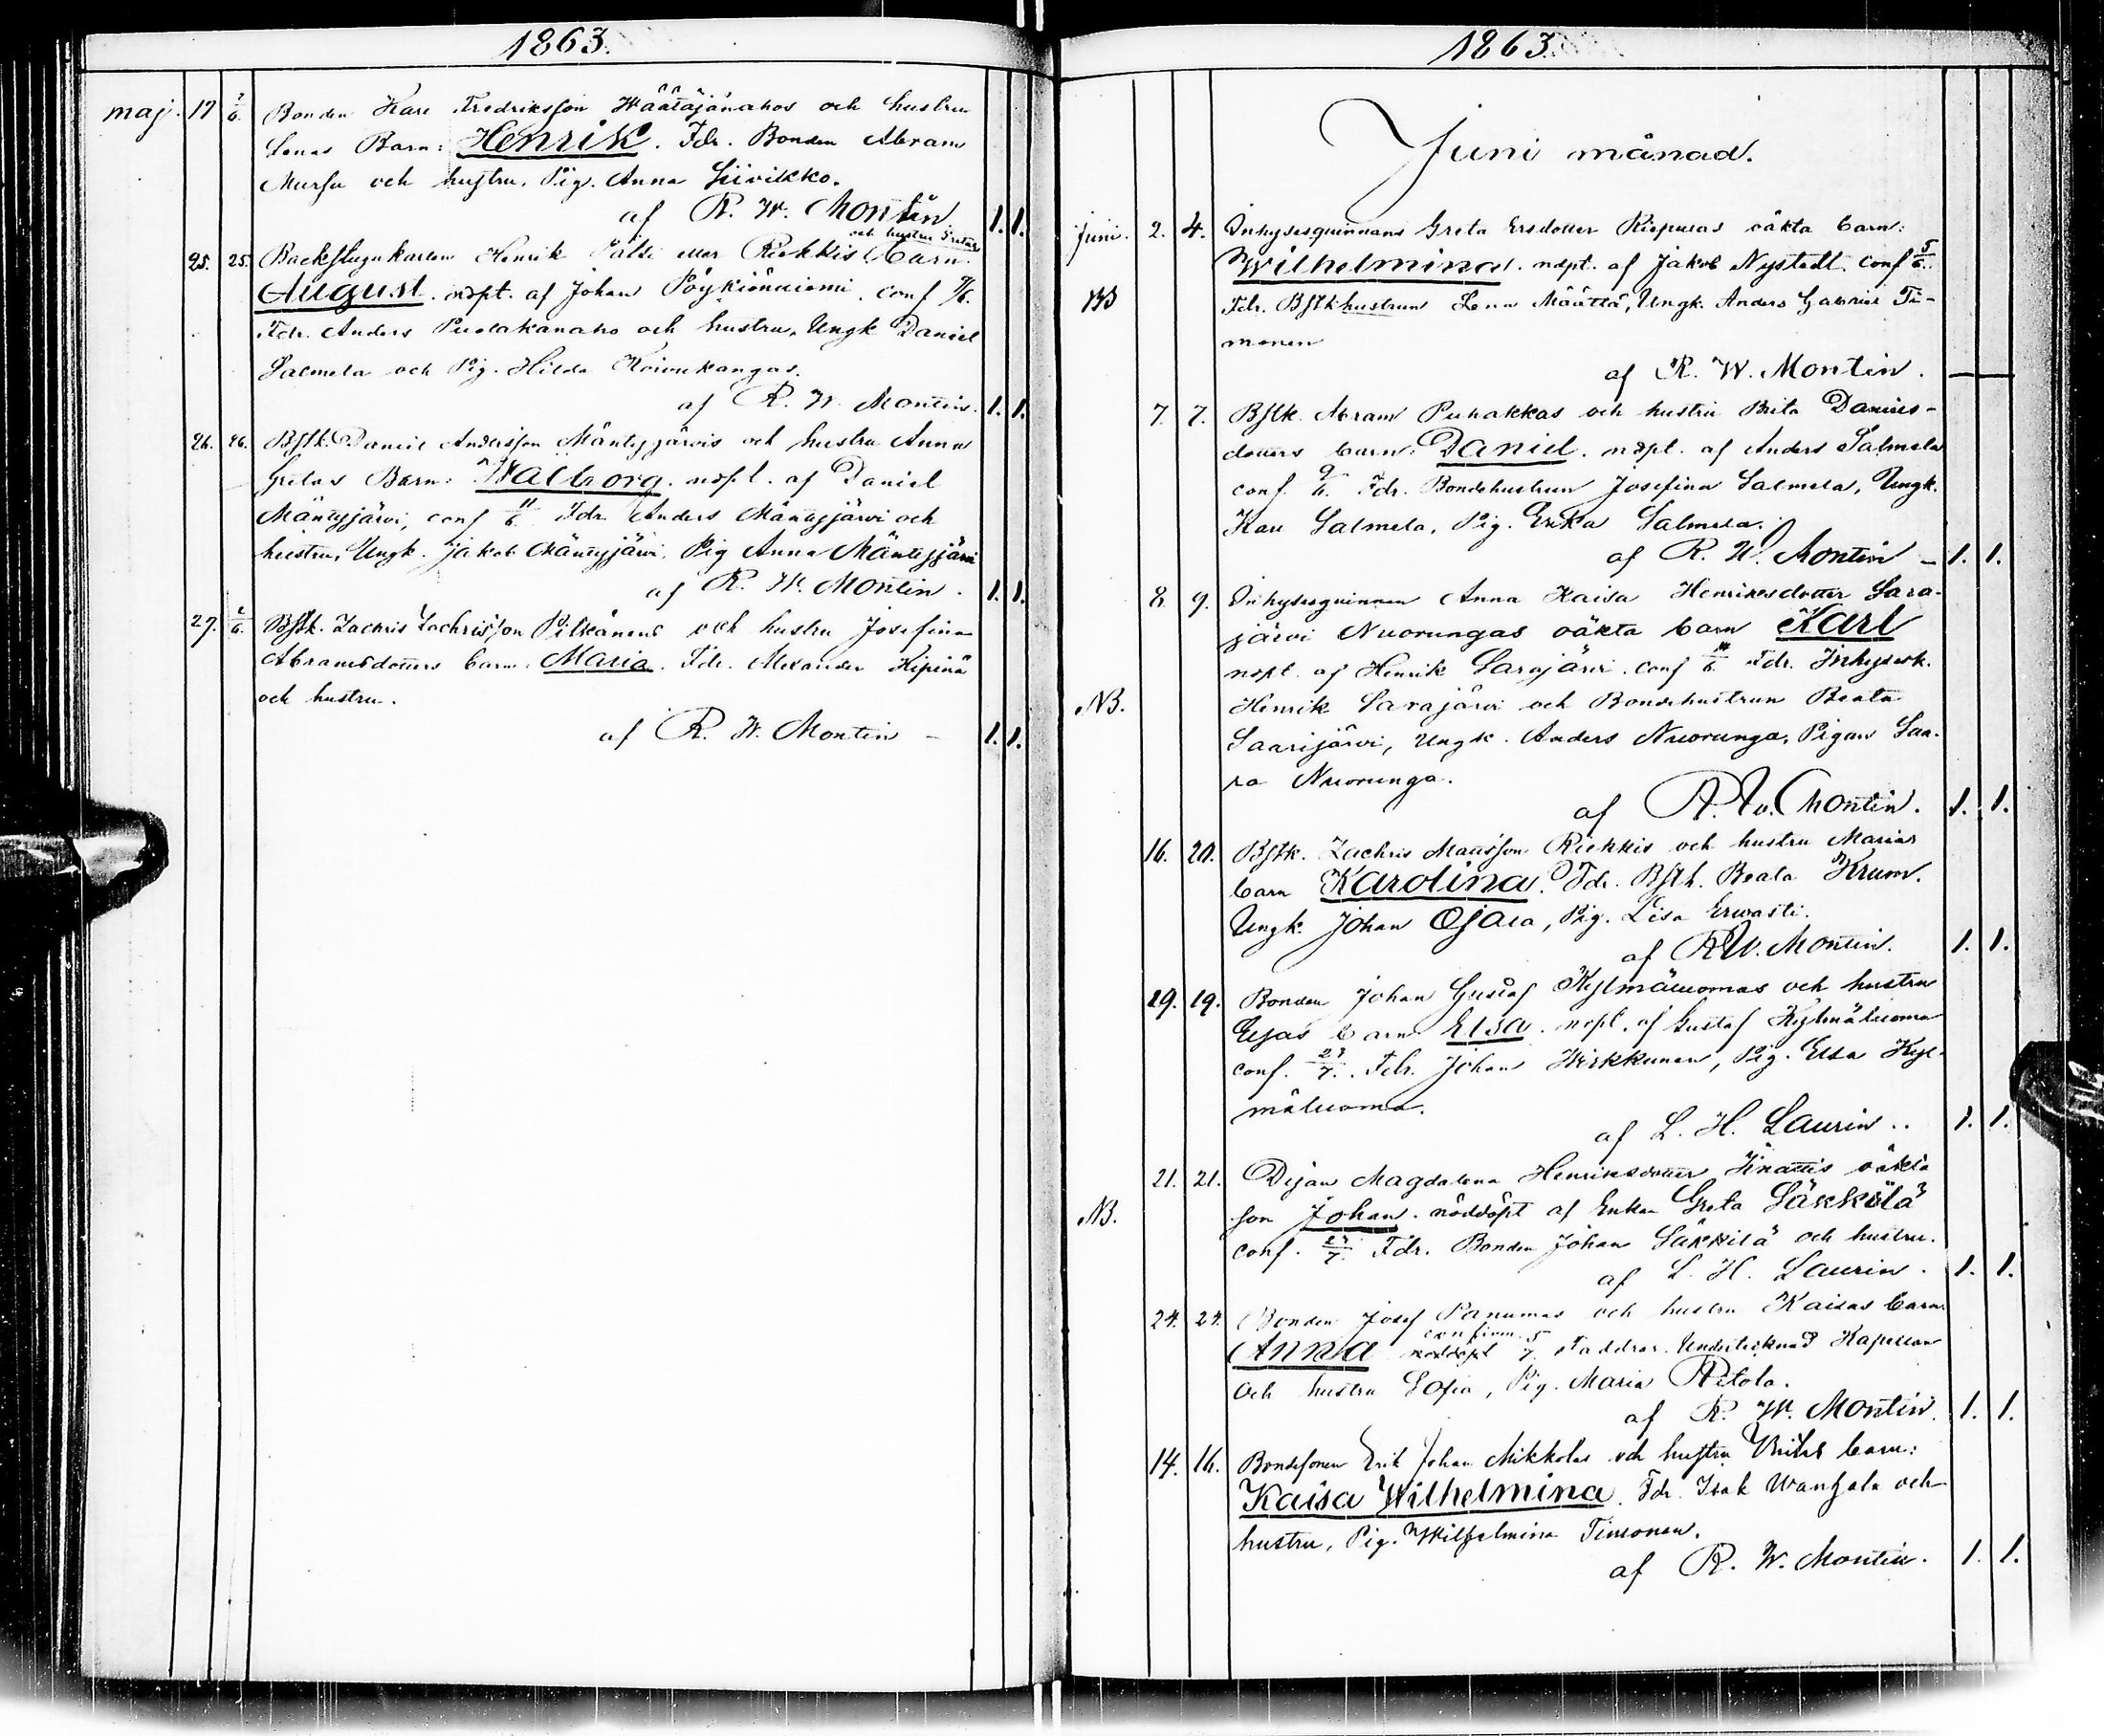 1863.
maj. 17 2/6. Bonden Karl Fredriksson Määtäjänahos och hustru
Lenas Barn: Henrik. Fdr. Bonden Abram
Mursu och hustru, Pig. Anna Liivikko.
af R. W. Montin 1. 1.
och hustru Gretas
25. 25. Backstugukarlen Henrik Pätsi eller Riekkis barn.
August. nöpt. af Johan Pöykiöniemi. conf 7/6.
Fdr. Anders Puolakanaho och hustru, Ungk Daniel
Salmela och Pig. Hilda Koivukangas.
af R. W. Montin. 1. 1.
26. 26. Bstk. Daniel Andersson Mäntyjärvis och hustru Anna
Gretas Barn: Walborg. nöpt. af Daniel
Mäntyjärvi, conf 11/6. Fdr. Anders Mäntyjärvi och
hustru, Ungk. Jakob Mäntyjärvi, Pig Anna Mäntyjärvi
af R. W. Montin. 1. 1.
27. 2/6. Bstk. Zachris Zachrisson Pitkänens och hustru Josefina
Abramsdotters barn. Maria. Fdr. Alexander Kipinä
och hustru.
af R. W. Montin – 1. 1.
1863.
Juni månad.
Juni. 2. 4. Inhysesqvinnans Greta Ersdotter Riepulas oäkta barn:
Wilhelmina. nöpt. af Jakob Nystedt. conf 5/6.
NB Fdr. Bstkhustrun Lena Määttä, Ungk. Anders Gabriel Ti-
monen
af R. W. Montin. —
7. 7. Bstk. Abram Puhakkas och hustru Brita Daniels-
dotters barn: Daniel. nöpt. af Anders Salmela
conf. 9/6. Fdr. Bondehustrun Josefina Salmela, Ungk.
Karl Salmela, Pig. Erika Salmela.
af R. W. Montin – 1. 1.
8. 9. Inhysesqvinnan Anna Kaisa Henriksdotter Sara-
järvi Nuorungas oäkta barn Karl
nöpt. af Henrik Sarajärvi. conf /6. Fdr. Inhysesk.
NB. Henrik Sarajärvi och Bondehustrun Beata
Saarijärvi, Ungk. Anders Nuorunga, Pigan Saa-
ra Nuorunga.
af R. W. Montin. 1. 1.
16. 20. Bstk. Zachris Matsson Riekkis och hustru Marias
barn Karolina. Fdr. Bsth. Beata Krum.
Ungk. Johan Ojala, Pig. Lisa Erwasti.
af R W. Montin. 1. 1.
19. 19. Bonden Johan Gustaf Kylmäluomas och hustru
Elsas barn Elsa. nöpt. af Gustaf Kylmäluoma
conf. 27/7. Fdr. Johan Wirkkunen, Pig. Elsa Kyl-
mäluoma.
af L. H. Laurin.. 1. 1.
21. 21. Dejan Magdalena Henriksdotter Jinattis oäkta
NB. son Johan. nöddöpt af Enkan Greta Säkkilä
conf. 27/7. Fdr. Bonden Johan Säkkilä och hustru.
af L. H. Laurin. 1. 1.
24. 24. Bonden Josef Panumas och hustru Kaisas barn
confirm. 5
Anna nöddöpt 7. Faddrar. Undertecknad Kapellan
och hustru Sofia, Pig. Maria Pätola.
af R. W. Montin. 1. 1.
14. 16. Bondesonen Erik Johan Mikkolas och hustru Britas barn:
Kaisa Wilhelmina. Fdr. Isak Wanhala och
hustru, Pig. Wilhelmina Timonen.
af R. W. Montin. 1. 1.